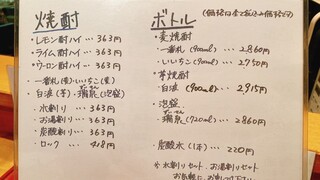 焼酎
・レモン酎ハイ … 363円
・ライム酎ハイ … 363円
・ウーロン酎ハイ … 363円
・一番札(麦)・いいちこ(麦)
・白波(芋)・瑞泉(泡盛)
・水割り … 363円
・お湯割り … 363円
・炭酸割り … 363円
・ロック … 418円
ボトル
(価格は全て税込み価格です)
・麦焼酎
・一番札(900ml) … 2,860円
・いいちこ(900ml) … 2,750円
・芋焼酎
・白波(900ml) … 2,915円
・泡盛
・瑞泉(720ml) … 2,860円
・炭酸水(1本) … 220円
※水割りセット、お湯割りセット
お気軽にお申しつけ下さい